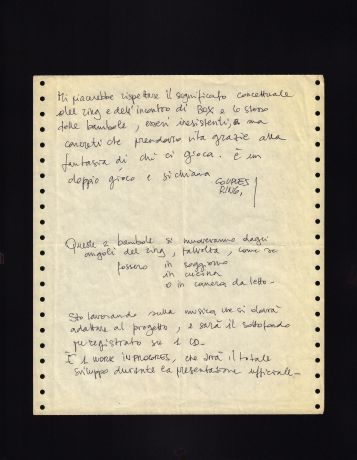 Mi piacerebbe rispettare il significato concettuale
del ring e dell'incontro di BOX e lo stesso
delle bambole, esseri inesistenti, ma
concreti che prendono vita grazie alla
fantasia di chi ci gioca. È un
doppio gioco e si chiama
COUPLES
RING,
Queste 2 bambole si muoveranno dagli
angoli del ring, talvolta, come se
fossero in soggiorno
in cucina
o in camera da letto.
Sto lavorando sulla musica che si dovrà
adattare al progetto, e sarà il sottofondo
preregistrato su 1 CD.
È 1 WORK IN PROGRES, che avrà il totale
sviluppo durante la presentazione ufficiale.